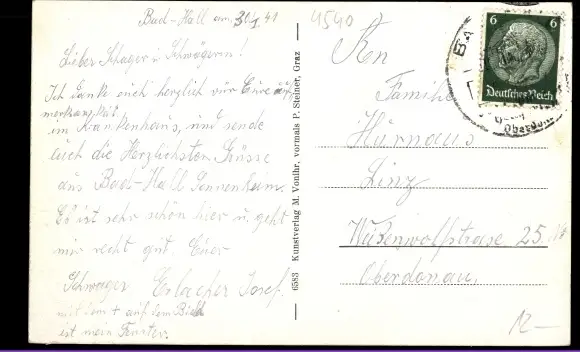 Bad-Hall am 30.4.41
Lieber Schager u. Schwägerin!
Ich danke euch herzlich vür Eure auf
merksamkeit
im Krankenhaus, und sende
euch die Herzlichsten Grüsse
aus Bad-Hall Sonnenheim.
Es ist sehr schön hier u. geht
mir recht gut. Euer
Schwager Erlacher Josef.
mit dem + auf dem Bield
ist mein Fenster.
6583 Kunstverlag M. Vouihr, vormals P. Steiner, Graz
4540
6 6
Deutsches Reich
Oberdon
Familie
Hurnaus
Linz
25
Oberdonau.
12-